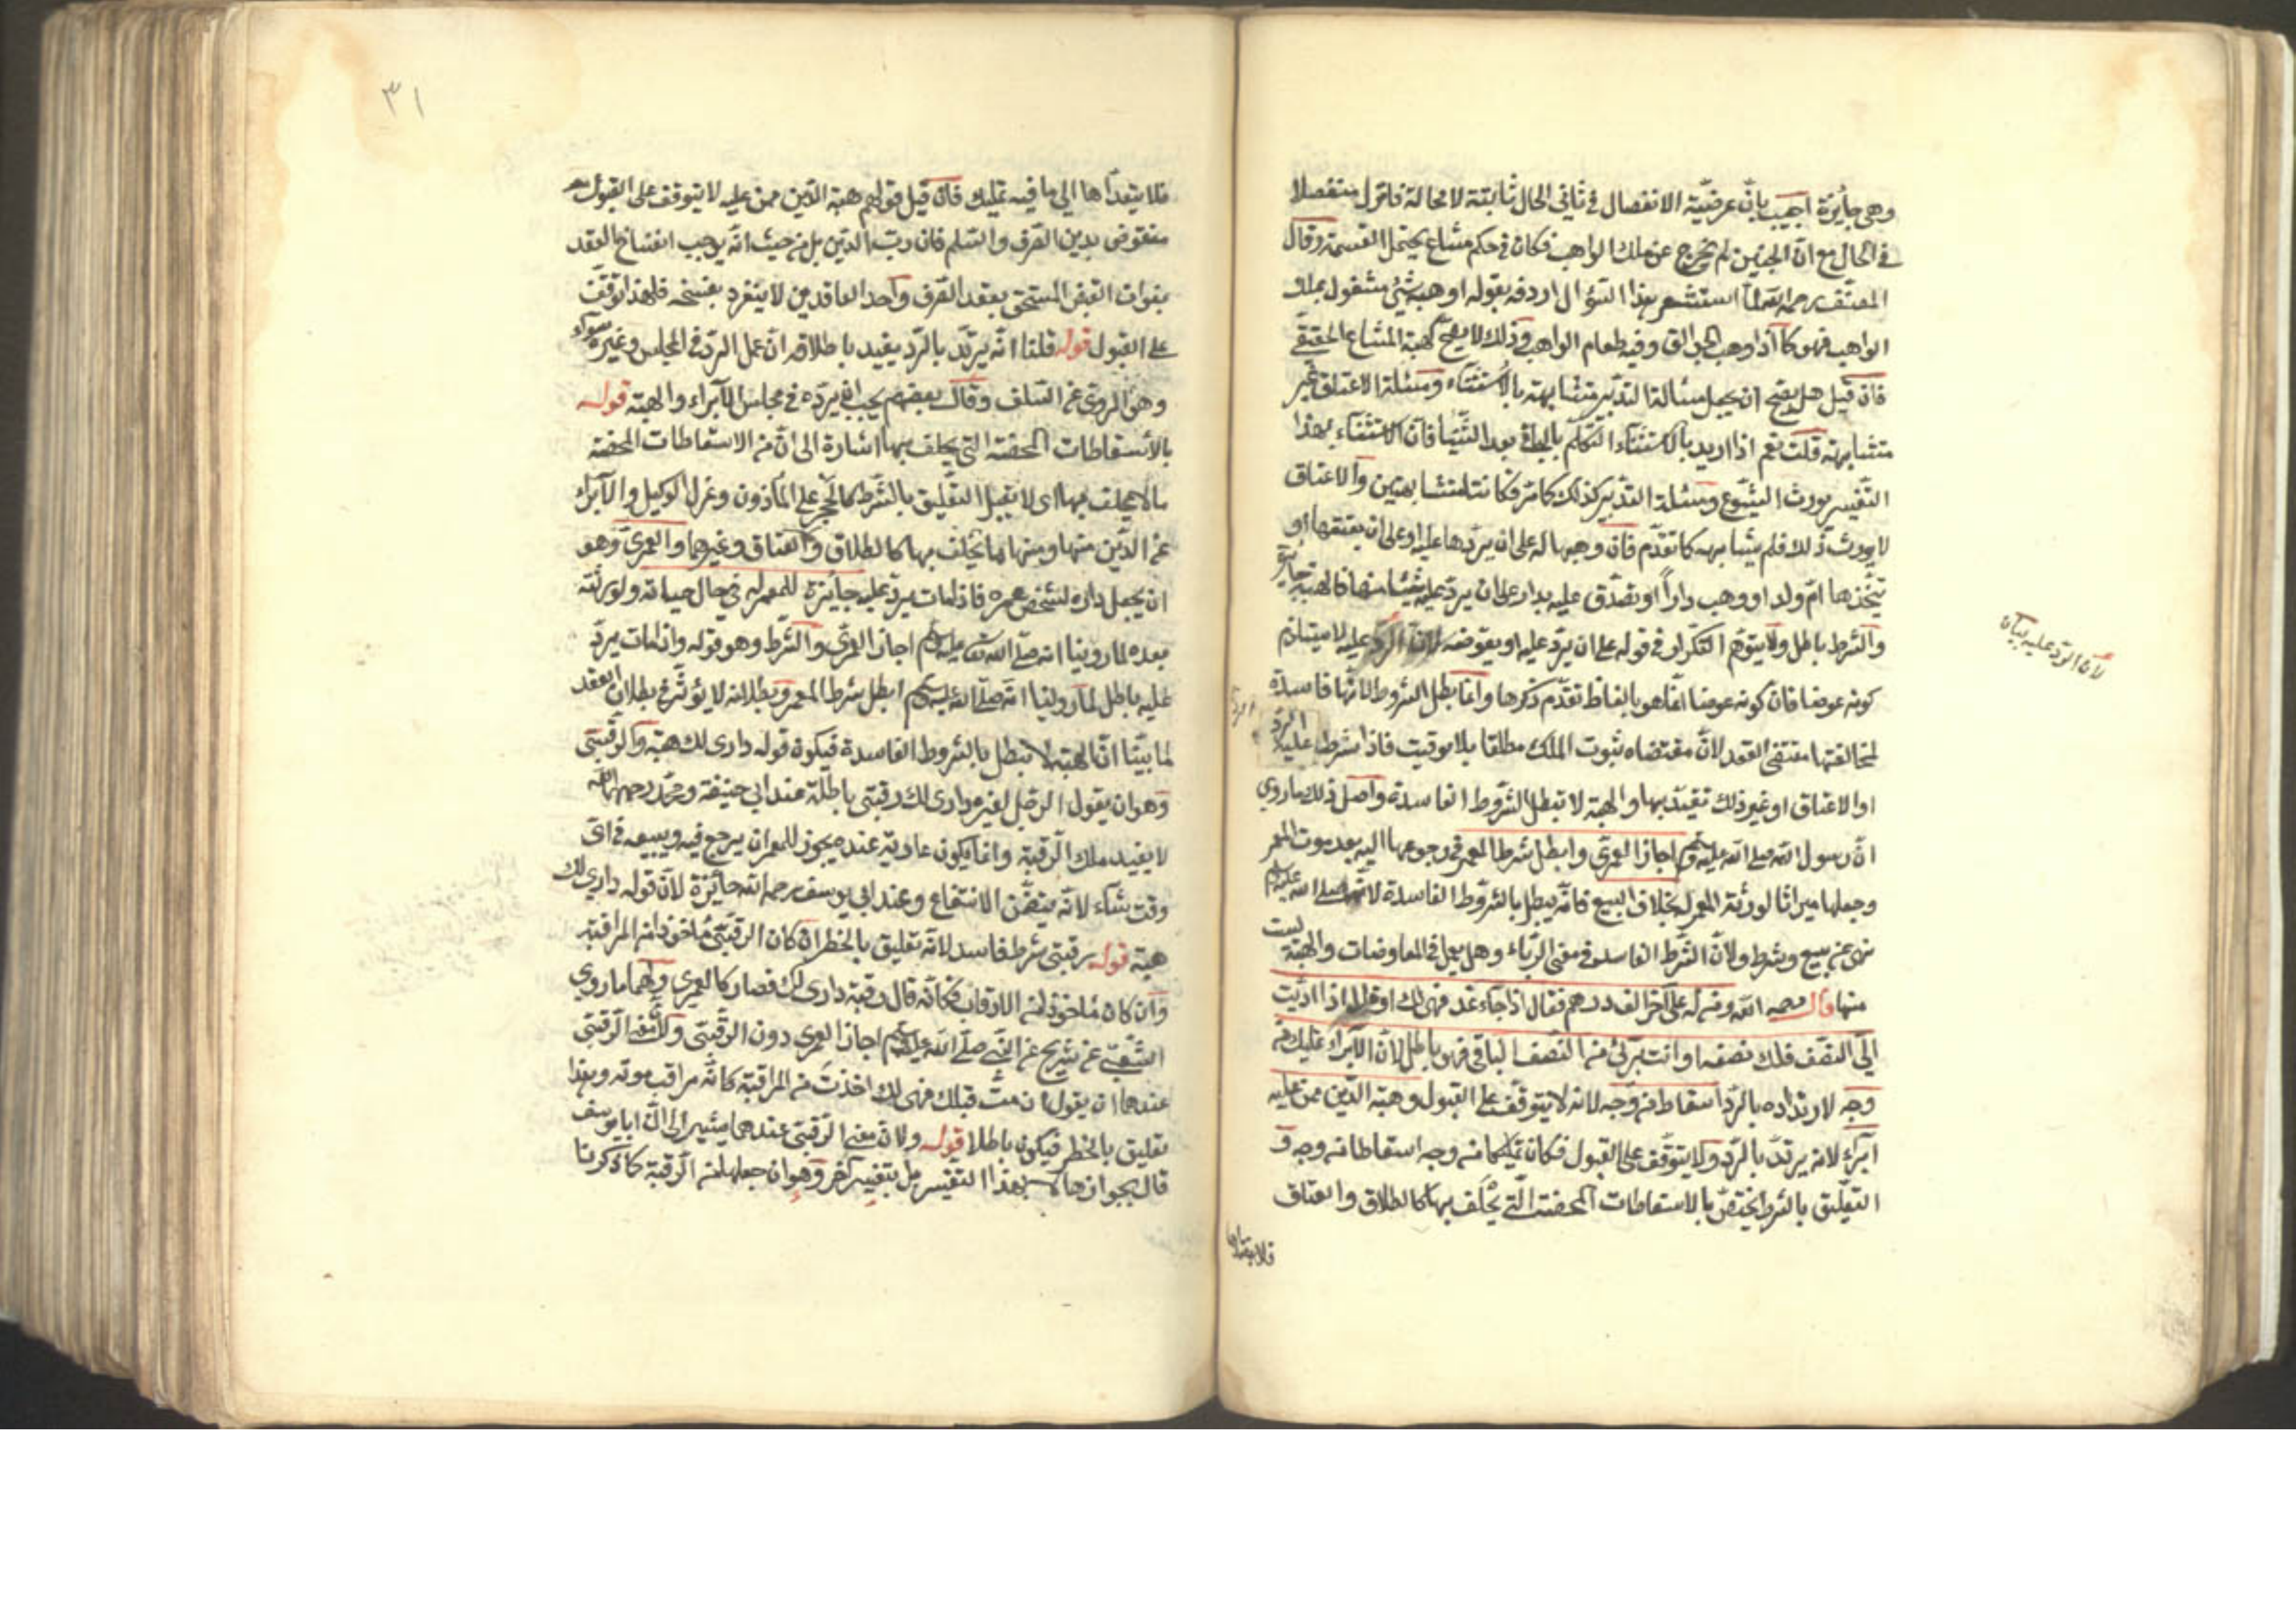 وهي جائزة اجيب بان عرضية الانفصال في ثاني الحال ثابتة لا محالة فانزل منفصلا
في الحال مع ان الجنين لم يخرج عن ملك الواهب فكان في حكم مشاع يحتمل القسمة وقال
المصنف رحمه الله لما استشعر بهذا السؤال اردفه بقوله او هبة شئ مشغول بملك
الواهب فهو كما اذا وهب الجوالق وفيه طعام الواهب وذلك لا يصح كهبة المشاع الحقيقي
فان قيل هل يصح ان يجعل مسألة التدبير متشابهة بالاستثناء ومسئلة الاعتاق غير
متشابهة قلت نعم اذا اريد بالاستثناء التكلم بالباقي بعد الثنيا فان الاستثناء بهذا
التفسير يورث الشيوع ومسئلة التدبير كذلك كما مر فكانتا متشابهتين والاعتاق
لا يورث ذلك فلم يشابهه كما تقدم فان وهبها له على ان يردها عليه او على ان يعتقها او
يتخذها ام ولد او وهب دارا او تصدق عليه بدار على ان يرد عليه شيئا منها فالهبة جايزة
والشرط باطل ولا يتوهم التكرار في قوله على ان يرد عليه او يعوضه لان الرد عليه لا يستلزم
كونه عوضا فان كونه عوضا انما هو بالفاظ تقدم ذكرها وانما بطل الشروط لانها فاسدة
لمخالفتها مقتضى العقد لان مقتضاه ثبوت الملك مطلقا بلا توقيت فاذا شرط عليه الرد
او الاعتاق او غير ذلك تقيد بها والهبة لا تبطل بالشروط الفاسدة واصل ذلك ما روي
ان رسول الله صلى الله عليه وسلم اجاز العمرى وابطل شرط المعمر في رجوعها اليه بعد موت المعمر
وجعلها ميراثا لورثة المعمر له بخلاف البيع فانه يبطل بالشروط الفاسدة لانه صلى الله عليه وسلم
نهى عن بيع وشرط ولان الشرط الفاسد في معنى الرباء وهل يعمل في المعاوضات والهبة ليست
منها قال رحمه الله ومن له على آخر الف درهم فقال اذا جاء غد فهي لك او قال اذا اديت
الي النصف فلك نصفه او انت برئ من النصف الباقي فهو باطل لان الابراء تمليك من
وجه لارتداده بالرد اسقاط من وجه لانه لا يتوقف على القبول وهبة الدين ممن عليه
ابراء لانه يرتد بالرد ولا يتوقف على القبول فكان تمليكا من وجه اسقاطا من وجه و
التعليق بالشرط يختص بالاسقاطات المحضة التي يحلف بها كالطلاق والعتاق
فلا يتعداها
لان الرد عليه بيان
٣١
فلا يتعداها الى ما فيه تمليك فان قيل قولهم هبة الدين ممن عليه لا يتوقف على القبول
منقوض بدين الصرف والسلم فان رب الدين بل من حيث انه يوجب انفساخ العقد
بفوات القبض المستحق بعقد الصرف واحد العاقدين لا ينفرد بفسخه فلهذا توقف
على القبول قوله قلنا انه يرتد بالرد يفيد باطلاقه ان عمل الرد في المجلس وغيره سواء
وهو المروي عن السلف وقال بعضهم يجب ان يرده في مجلس الابراء والهبة قوله
بالاسقاطات المحضة التي يحلف بها اشارة الى ان من الاسقاطات المحضة
ما لا يحلف بها اى لا يقبل التعليق بالشرط كالحجر على المأذون وعزل الوكيل والابراء
عن الدين منها ومنها ما يحلف بها كالطلاق والعتاق وغيرهما والعمرى وهو
ان يجعل داره لشخص عمره فاذا مات يرد عليه جائزة للمعمر له في حال حياته ولورثته
بعده لما روينا انه صلى الله عليه وسلم اجاز العمرى والشرط وهو قوله واذا مات يرد
عليه باطل لما روينا انه صلى الله عليه وسلم ابطل شرط المعمر وبطلانه لا يؤثر في بطلان العقد
لما بينا ان الهبة لا تبطل بالشروط الفاسدة فيكون قوله دارى لك هبة والرقبى
وهو ان يقول الرجل لغيره دارى لك رقبى باطلة عند ابي حنيفة ومحمد رحمهما الله
لا يفيد ملك الرقبة وانما يكون عارية عنده يجوز للمعمر ان يرجع فيه ويبيعه في اى
وقت شاء لانه يتضمن الانتفاع وعند ابي يوسف رحمه الله جائزة لان قوله دارى لك
هبة قوله رقبى شرط فاسد لانه تعليق بالخطر ان كان الرقبى مأخوذا من المراقبة
وان كان مأخوذا من الارقاب فكأنه قال رقبة دارى لك فصار كالعمرى ولهما ما روي
الشعبي عن شريح عن النبي صلى الله عليه وسلم اجاز العمرى دون الرقبى ولان معنى الرقبى
عندهما ان يقول ان مت قبلك فهي لك اخذت من المراقبة كانه مراقب موته وهذا
تعليق بالخطر فيكون باطلا قوله ولان معنى الرقبى عندهما يشير الى ان ابا يوسف
قال بجوازها لا بهذا التفسير بل بتفسير آخر وهو ان جعلها من الرقبة كما ذكرنا